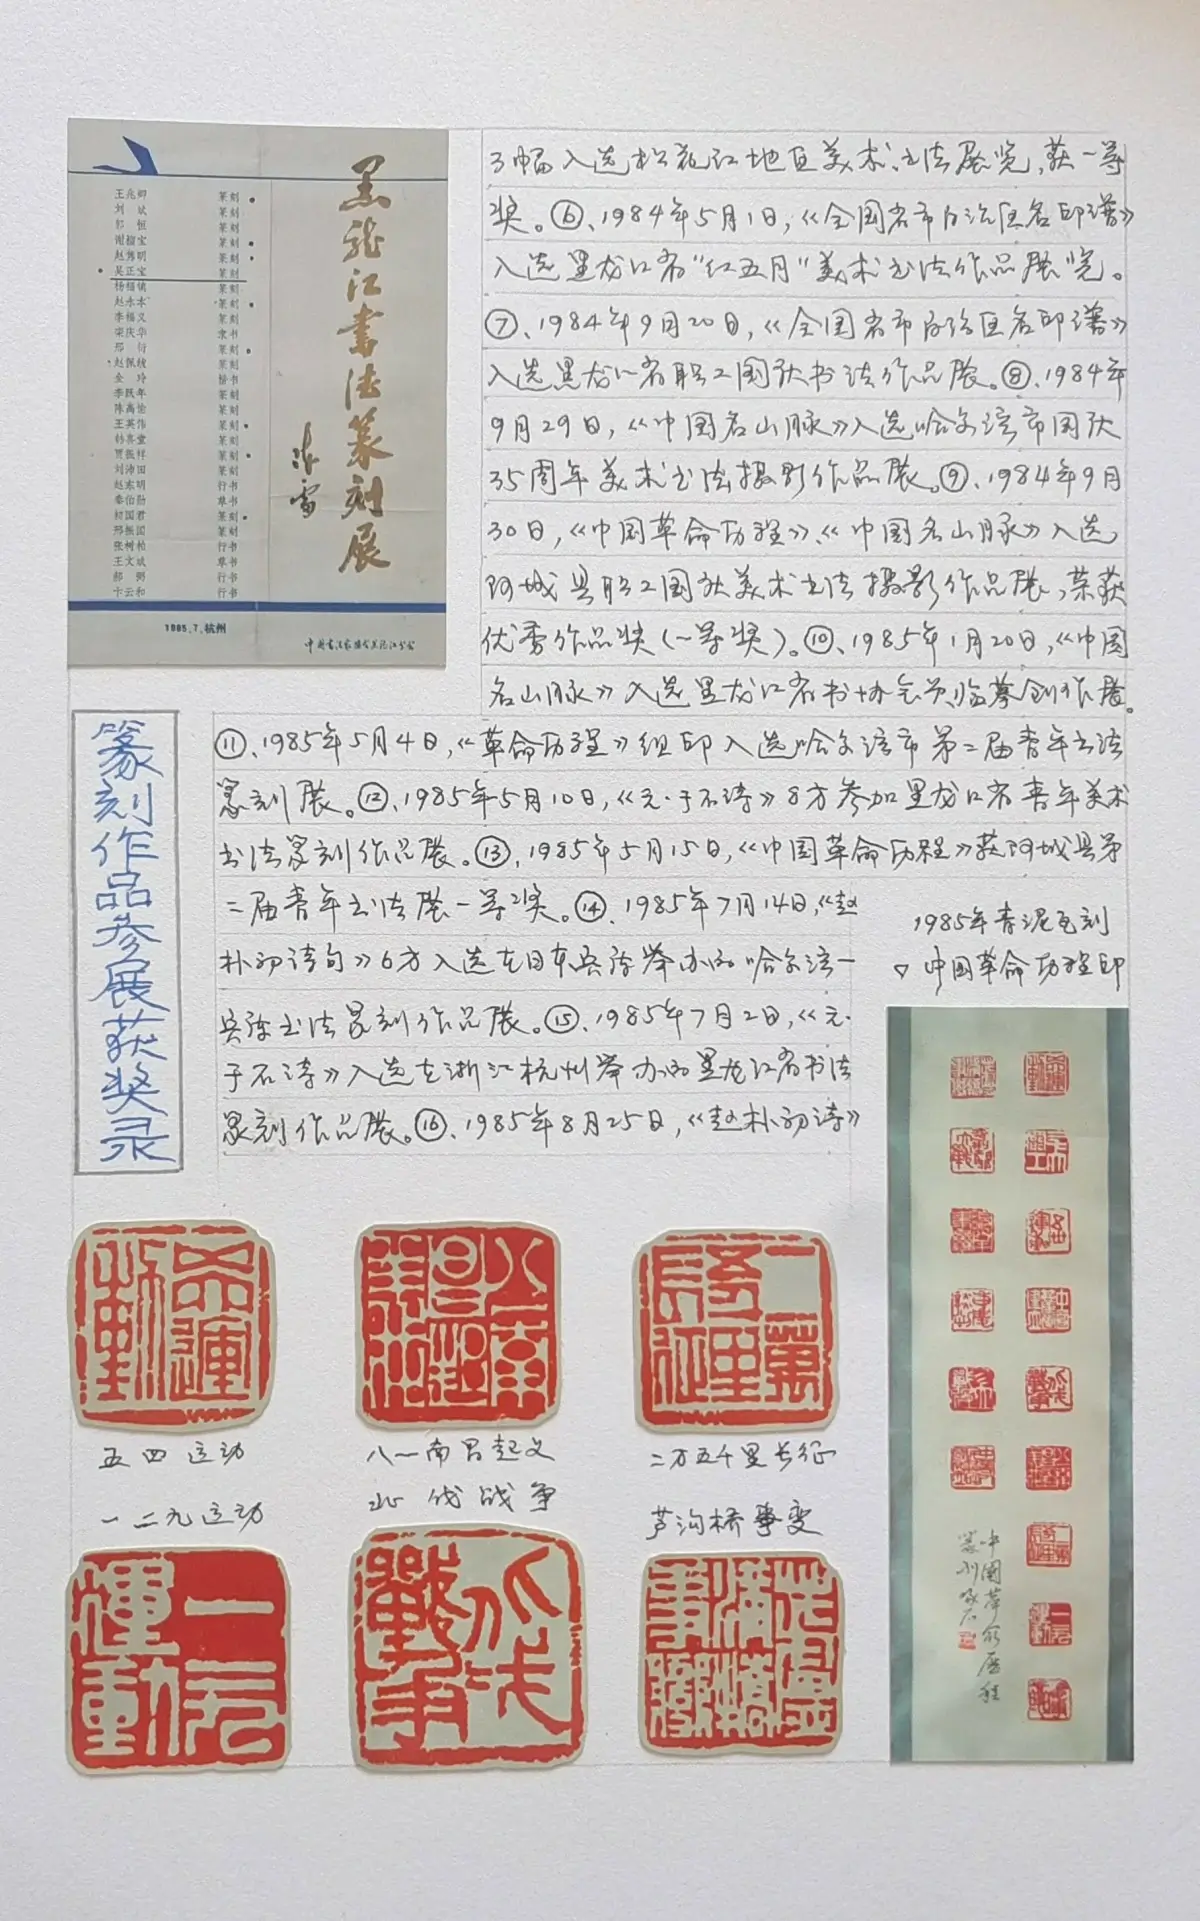 黑龙江书法篆刻展
王兆卿 篆刻
刘斌 篆刻
郭恒 篆刻
谢福宝 篆刻
赵博明 篆刻
吴正宝 篆刻
杨绍镜 篆刻
赵永本 篆刻
李福义 篆刻
栾庆华 隶书
邢衍 篆刻
赵佩线 篆刻
金玲 楷书
李跃年 篆刻
陈禹怡 篆刻
王英伟 篆刻
韩喜堂 篆刻
贾振祥 篆刻
刘沛田 篆刻
赵东明 行书
秦伯勋 草书
初国君 篆刻
邢振国 篆刻
张树松 行书
王文斌 草书
郝弼 行书
卞云和 行书
1985.7.杭州
中国书法家协会黑龙江分会
3幅入选松花江地区美术、书法展览，获一等
奖。⑥、1984年5月1日，《全国省市自治区名印谱》
入选黑龙江省“红五月”美术书法作品展览。
⑦、1984年9月20日，《全国省市自治区名印谱》
入选黑龙江省职工国庆书法作品展。⑧、1984年
9月29日，《中国名山脉》入选哈尔滨市国庆
35周年美术书法摄影作品展。⑨、1984年9月
30日，《中国革命历程》、《中国名山脉》入选
阿城县职工国庆美术书法摄影作品展，荣获
优秀作品奖(一等奖)。⑩、1985年1月20日，《中国
名山脉》入选黑龙江省书协会员临摹创作展。
⑪、1985年5月4日，《革命历程》组印入选哈尔滨市第二届青年书法
篆刻展。⑫、1985年5月10日，《元·于石诗》8方参加黑龙江省青年美术
书法篆刻作品展。⑬、1985年5月15日，《中国革命历程》获阿城县第
二届青年书法展一等奖。⑭、1985年7月14日，《赵
朴初诗句》6方入选在日本兵库举办的哈尔滨一
兵库书法篆刻作品展。⑮、1985年7月2日，《元·
于石诗》入选在浙江杭州举办的黑龙江省书法
篆刻作品展。⑯、1985年8月25日，《赵朴初诗》
篆刻作品参展获奖录
1985年青泥瓦刻
中国革命历程印
五四运动
八一南昌起义
二万五千里长征
一二九运动
北伐战争
芦沟桥事变
中国革命历程